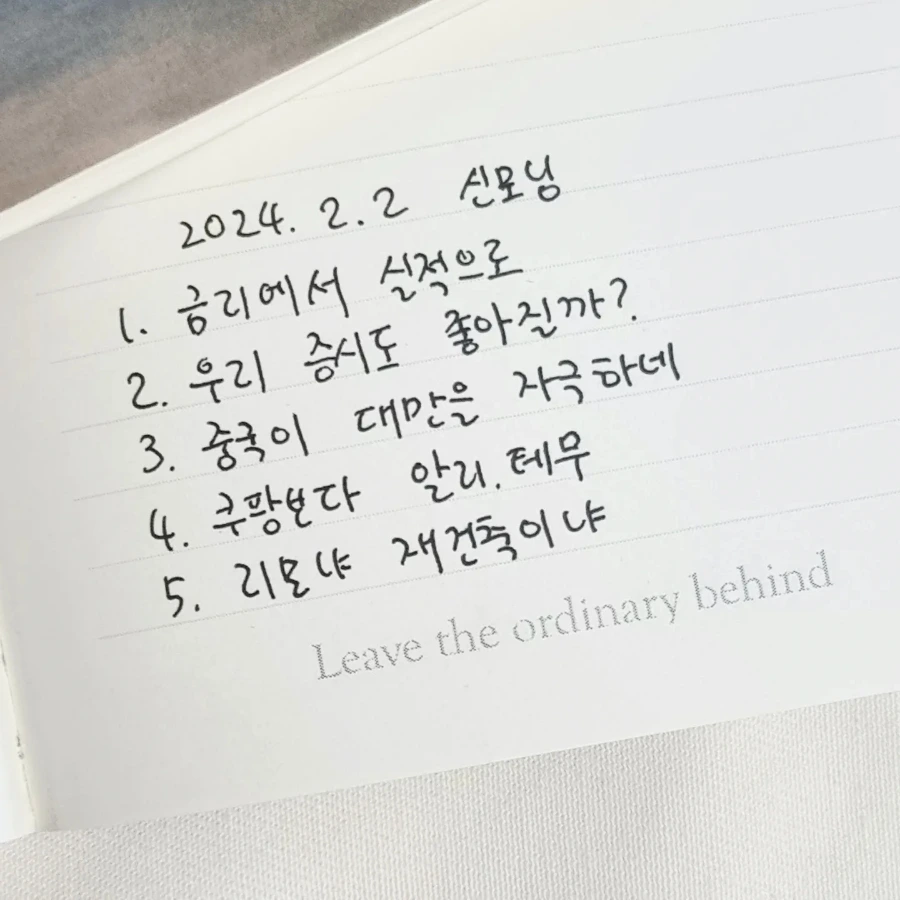 2024. 2. 2 신모닝
1. 금리에서 실적으로
2. 우리 증시도 좋아질까?
3. 중국이 대만을 자극하네
4. 쿠팡보다 알리. 테무
5. 리모냐 재건축이냐
Leave the ordinary behind